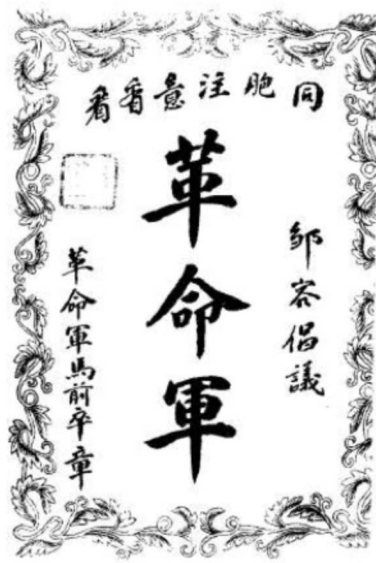 同胞注意看看
邹容倡議
革命軍
革命軍馬前卒章